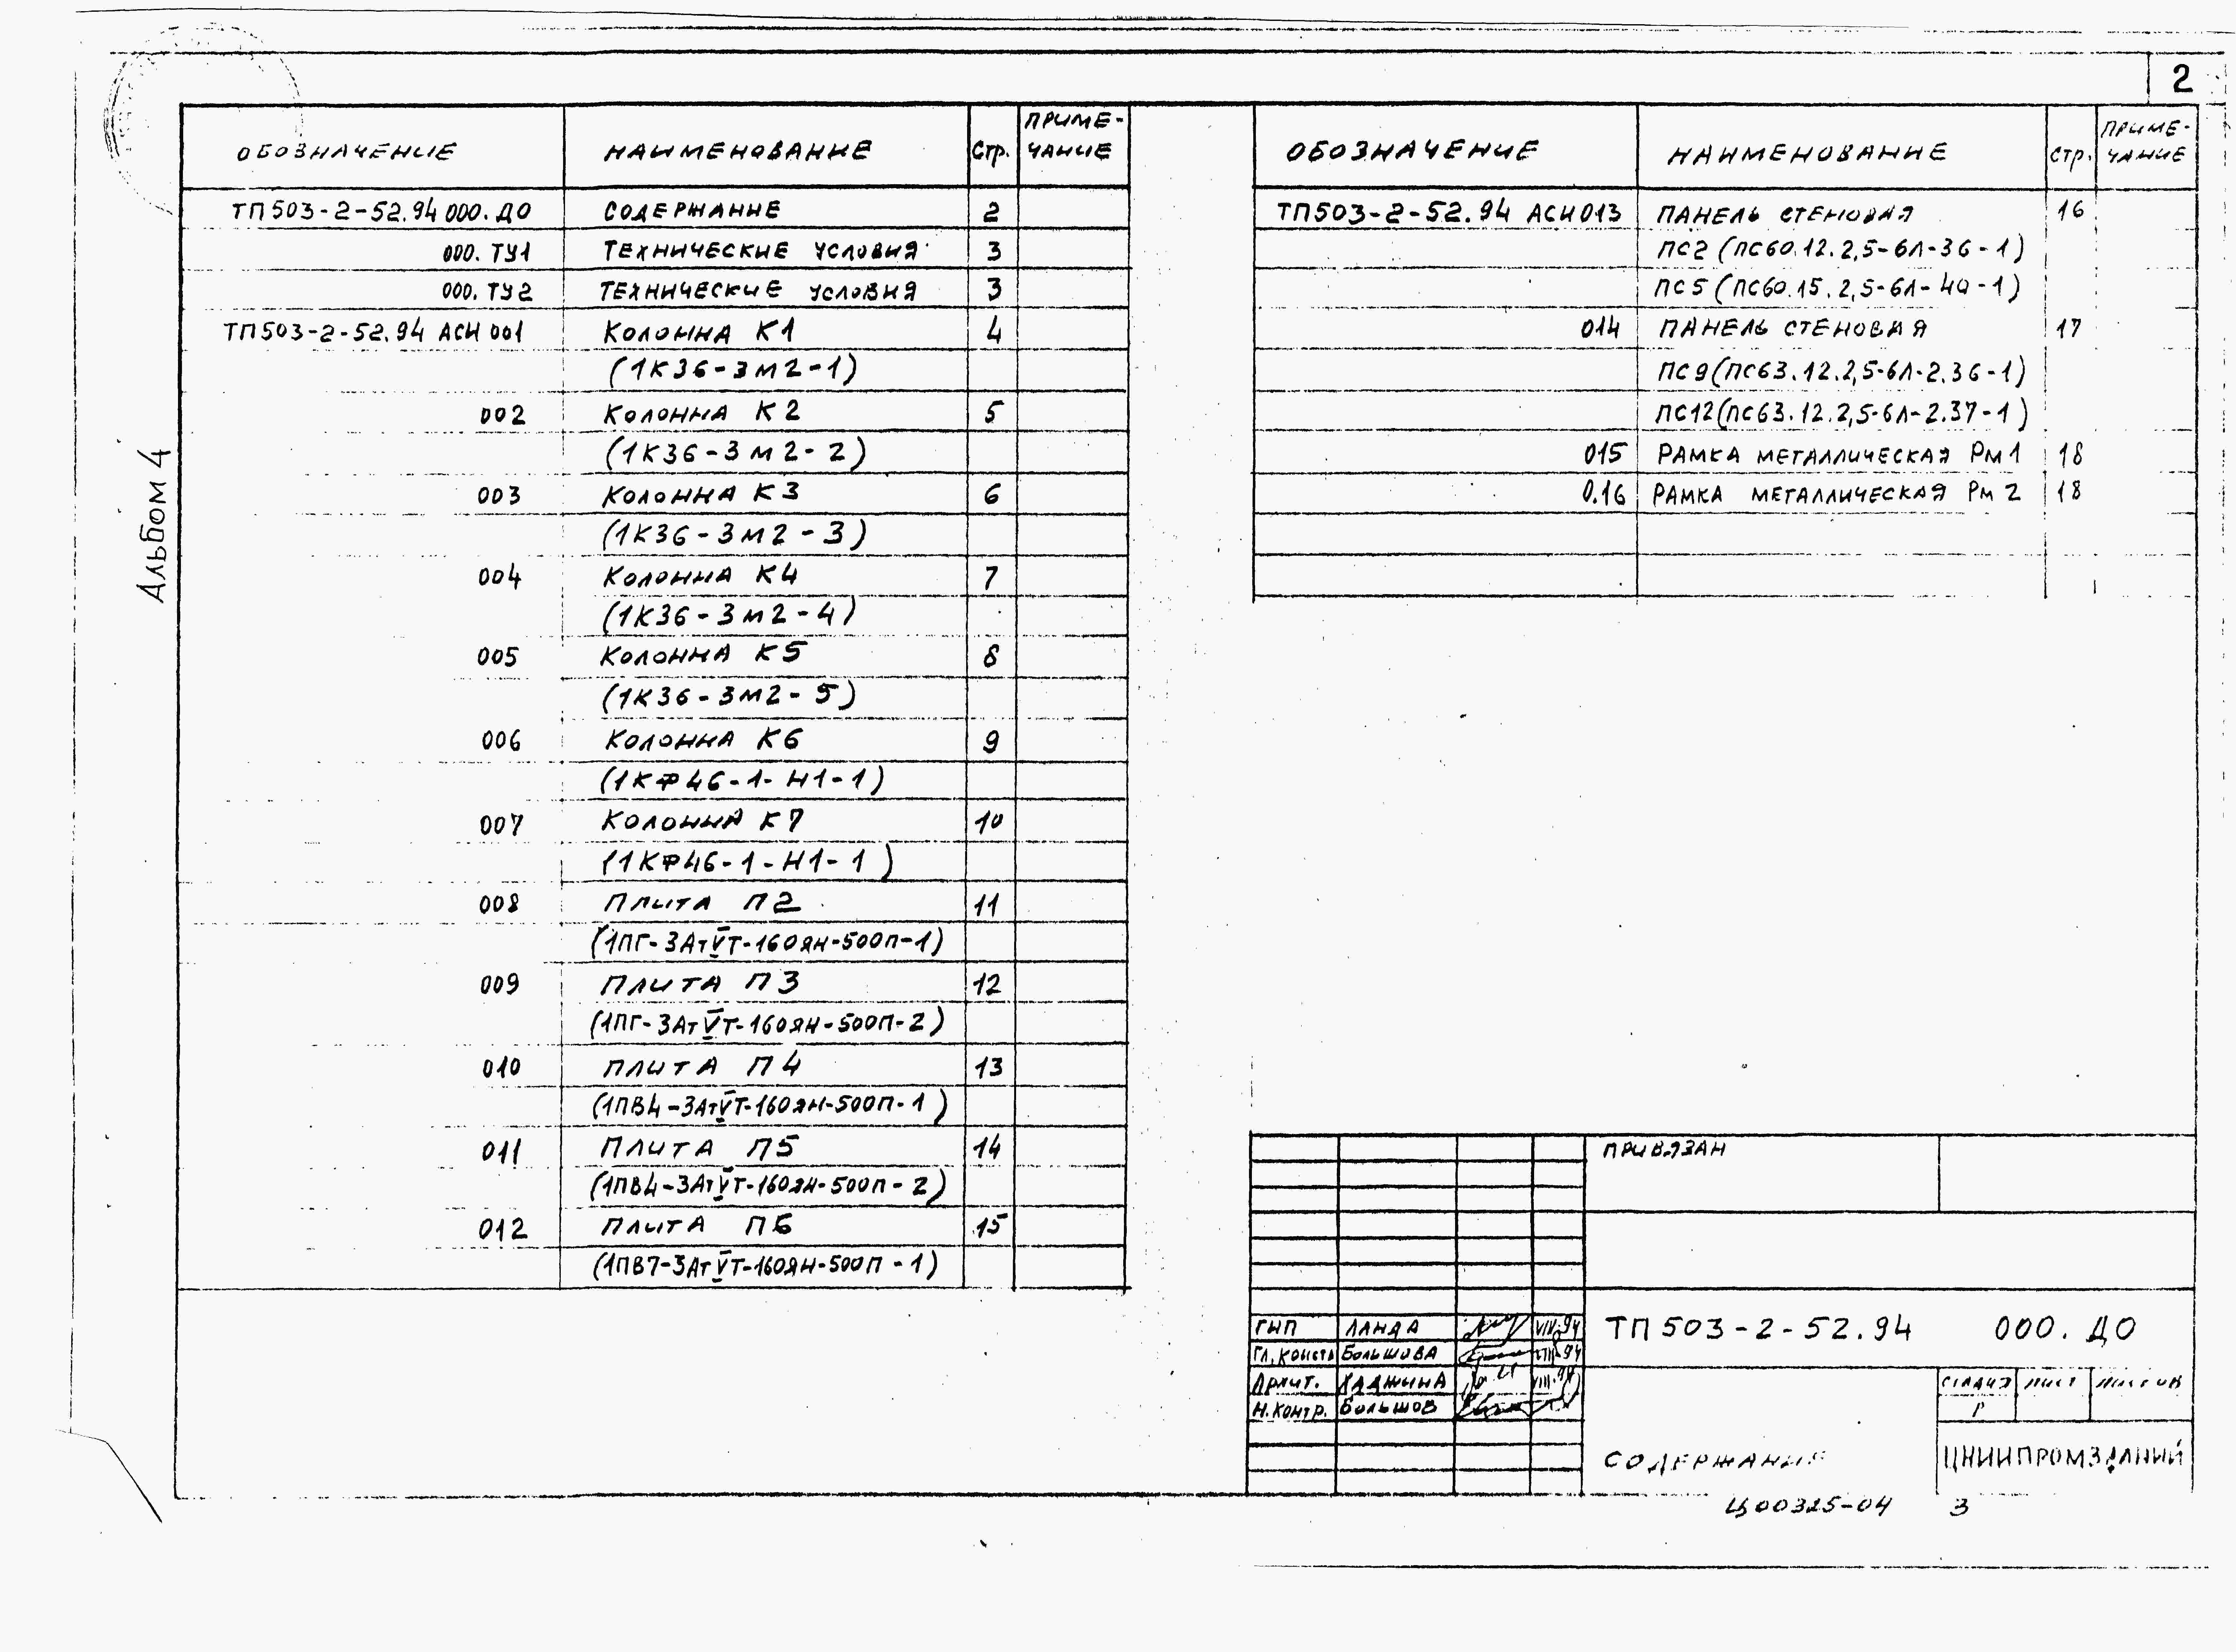 2
Альбом 4
ОБОЗНАЧЕНИЕ НАИМЕНОВАНИЕ Стр. ПРИМЕ-
ЧАНИЕ
ТП503-2-52.94 000. ДО СОДЕРЖАНИЕ 2
000. ТУ1 ТЕХНИЧЕСКИЕ УСЛОВИЯ 3
000. ТУ2 ТЕХНИЧЕСКИЕ УСЛОВИЯ 3
ТП503-2-52.94 АСИ 001 КОЛОННА К1 4
(1К36-3М2-1)
002 КОЛОННА К2 5
(1К36-3М2-2)
003 КОЛОННА К3 6
(1К36-3М2-3)
004 КОЛОННА К4 7
(1К36-3М2-4)
005 КОЛОННА К5 8
(1К36-3М2-5)
006 КОЛОННА К6 9
(1КФ46-1-Н1-1)
007 КОЛОННА К7 10
(1КФ46-1-Н1-1)
008 ПЛИТА П2 11
(1ПГ-3АтVТ-160ЯН-500П-1)
009 ПЛИТА П3 12
(1ПГ-3АтVТ-160ЯН-500П-2)
010 ПЛИТА П4 13
(1ПВ4-3АтVТ-160ЯН-500П-1)
011 ПЛИТА П5 14
(1ПВ4-3АтVТ-160ЯН-500П-2)
012 ПЛИТА П6 15
(1ПВ7-3АтVТ-160ЯН-500П-1)
ОБОЗНАЧЕНИЕ НАИМЕНОВАНИЕ стр. ПРИМЕ-
ЧАНИЕ
ТП503-2-52.94 АСИ013 ПАНЕЛЬ СТЕНОВАЯ 16
ПС2 (ПС60.12.2,5-6Л-36-1)
ПС5 (ПС60.15.2,5-6Л-40-1)
014 ПАНЕЛЬ СТЕНОВАЯ 17
ПС9(ПС63.12.2,5-6Л-2.36-1)
ПС12(ПС63.12.2,5-6Л-2.37-1)
015 РАМКА МЕТАЛЛИЧЕСКАЯ Рм1 18
0.16 РАМКА МЕТАЛЛИЧЕСКАЯ Рм2 18
ПРИВЯЗАН
ГИП ЛАНДА
ГЛ. КОНСТР БОЛЬШОВА
АРХИТ. ХАДЖИНА VIII.94
Н. КОНТР. БОЛЬШОВ
ТП 503-2-52.94 000. ДО
СТАДИЯ ЛИСТ ЛИСТОВ
Р
СОДЕРЖАНИЕ
ЦНИИПРОМЗДАНИЙ
Ц00325-04 3